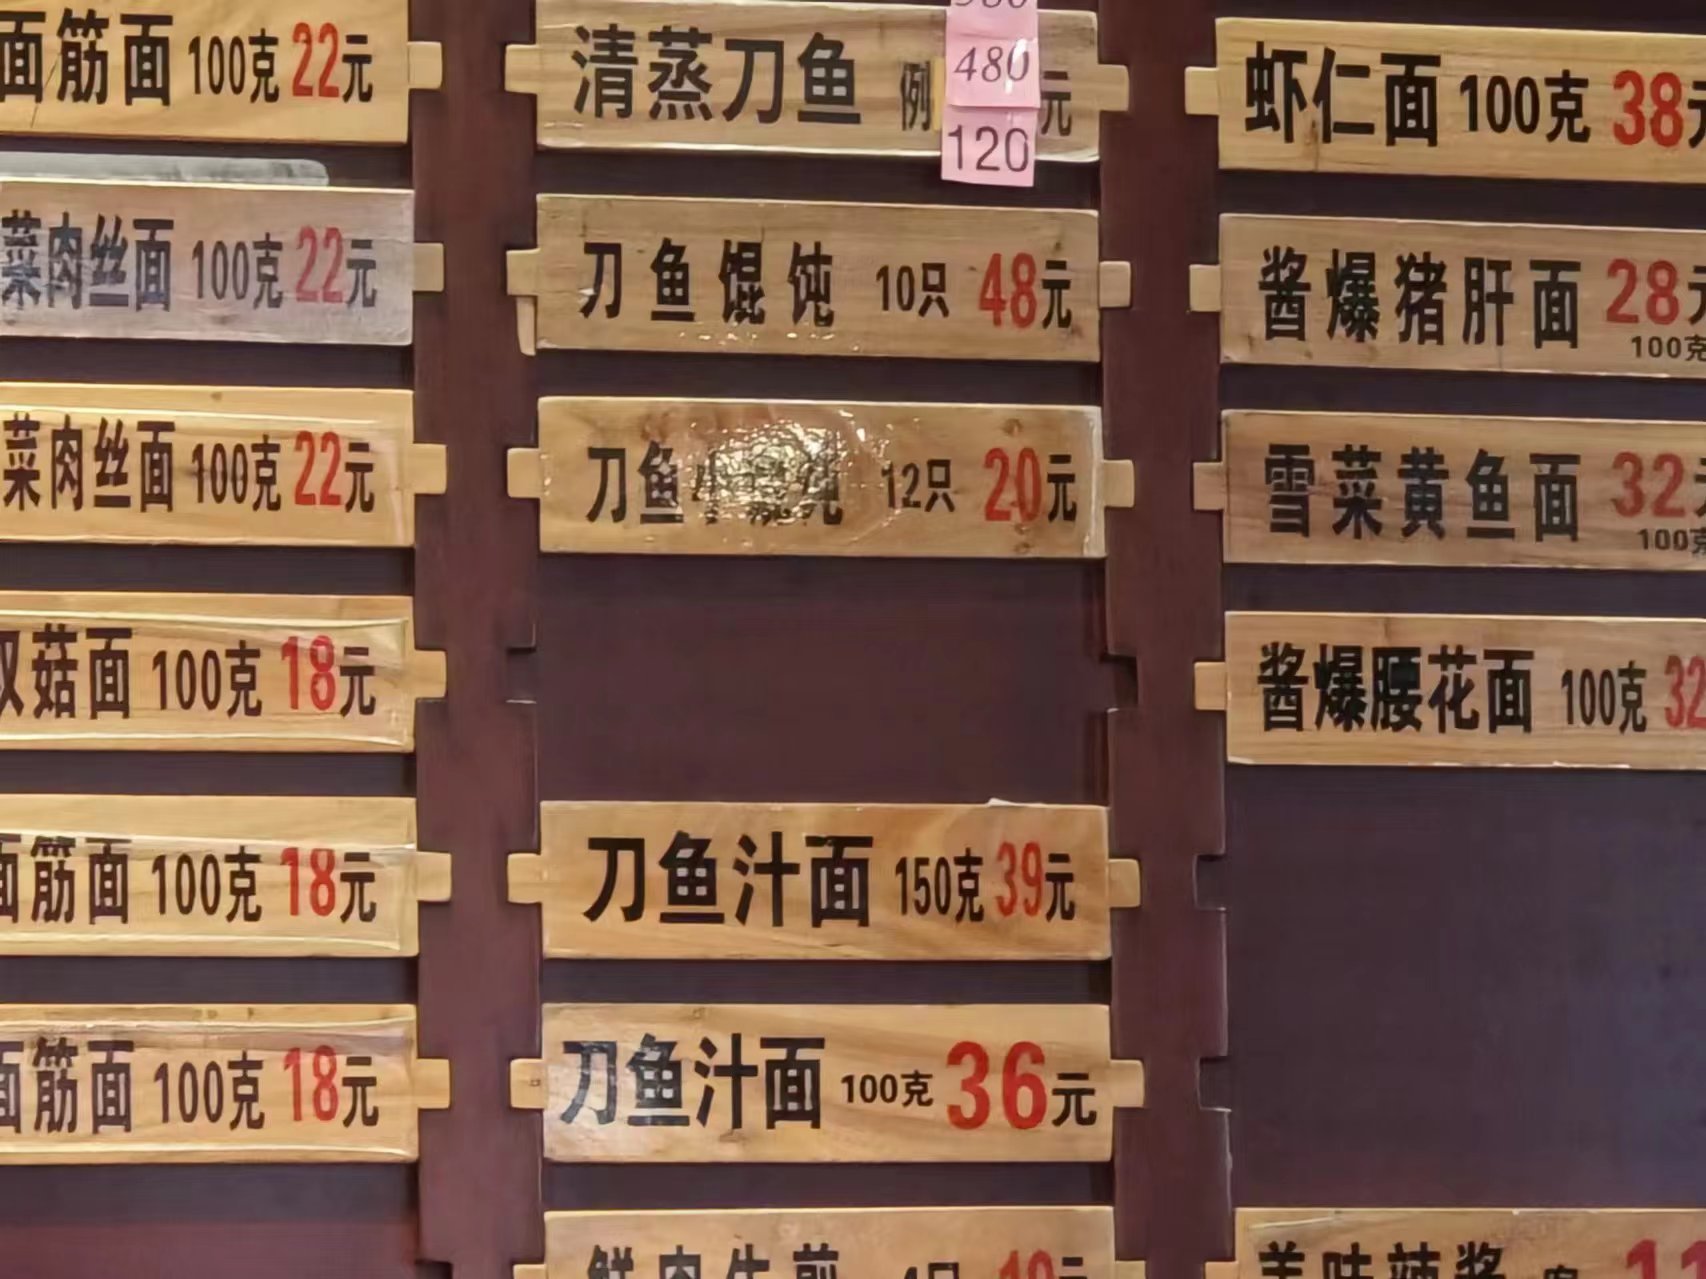 面筋面 100克 22元
菜肉丝面 100克 22元
菜肉丝面 100克 22元
菇面 100克 18元
面筋面 100克 18元
面筋面 100克 18元
清蒸刀鱼 例 480 元
120
刀鱼馄饨 10只 48元
刀鱼小馄饨 12只 20元
刀鱼汁面 150克 39元
刀鱼汁面 100克 36元
鲜肉生煎 4只 10元
虾仁面 100克 38元
酱爆猪肝面 28元
100克
雪菜黄鱼面 32元
100克
酱爆腰花面 100克 32
美味辣酱